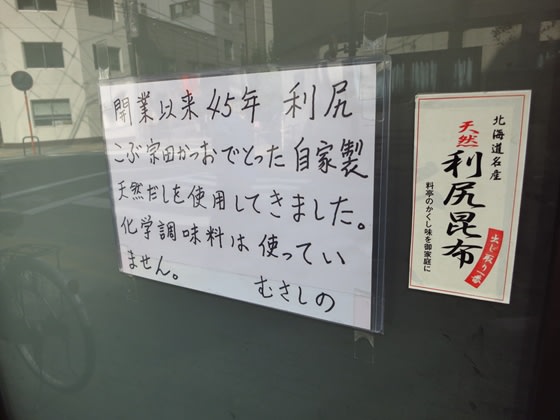 開業以来45年 利尻
こぶ宗田かつおでとった自家製
天然だしを使用してきました。
化学調味料は使ってい
ません。 むさしの
北海道名産
天然
利尻昆布
料亭のかくし味を御家庭に
出し取り一番